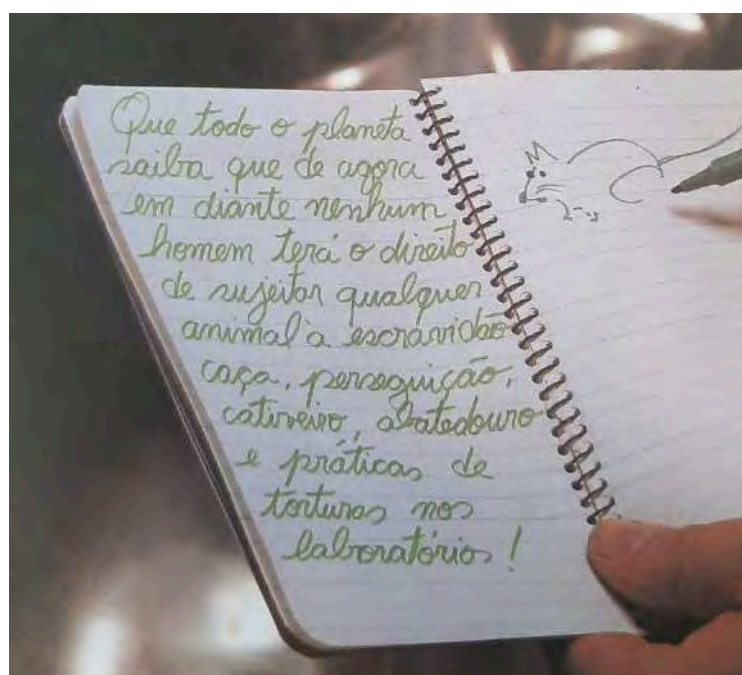 Que todo o planeta
saiba que de agora
em diante nenhum
homem terá o direito
de sujeitar qualquer
animal a escravidão
caça, perseguição,
cativeiro, abatedouro
e práticas de
torturas nos
laboratórios!